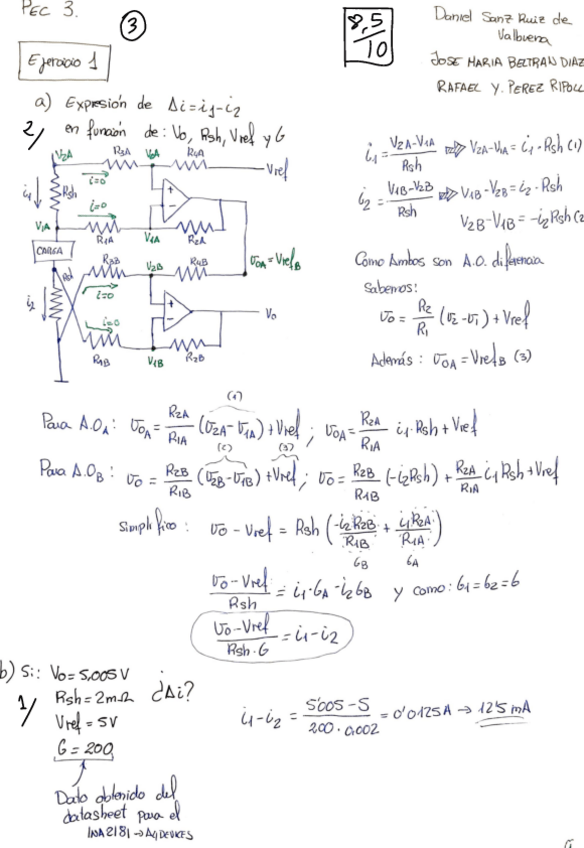 PEC 3.
3
8,5
10
Daniel Sanz Ruiz de
Valbuena
JOSE MARIA BELTRAN DIAZ
RAFAEL Y. PEREZ RIPOLL
Ejercicio 1
a) Expresión de Δi = i1 - i2
2/ en función de: Vo, Rsh, Vref y G
V2A R3A VoA R4A Vref
i1 Rsh i=0
i=0
V1A R1A V1A R2A
CARGA
R3B V2B R4B VOA = VrefB
i2 i=0 Vo
i=0
R1B V1B R2B
i1 = V2A-V1A / Rsh ⇒ V2A-V1A = i1 · Rsh (1)
i2 = V1B-V2B / Rsh ⇒ V1B-V2B = i2 · Rsh
V2B-V1B = -i2 Rsh (2
Como Ambos son A.O. diferencia
Sabemos:
Vo = R2 / R1 (V2-V1) + Vref
Además: VOA = VrefB (3)
(1)
Para A.OA: VOA = R2A / R1A (V2A - V1A) + Vref ; VOA = R2A / R1A i1 · Rsh + Vref
(2) (3)
Para A.OB: Vo = R2B / R1B (V2B - V1B) + Vref ; Vo = R2B / R1B (-i2 Rsh) + R2A / R1A i1 Rsh + Vref
Simplifico: Vo - Vref = Rsh (-i2 R2B / R1B + i1 R2A / R1A)
GB GA
Vo - Vref / Rsh = i1 · GA - i2 GB y como: G1 = G2 = G
Vo - Vref / Rsh · G = i1 - i2
b) Si: Vo = 5,005 V ¿Δi?
1/ Rsh = 2mΩ
Vref = 5V
G = 200
i1 - i2 = 5'005 - 5 / 200 · 0,002 = 0'0125A → 12'5 mA
Dato obtenido del
datasheet para el
INA2181 → A4 DEVICES